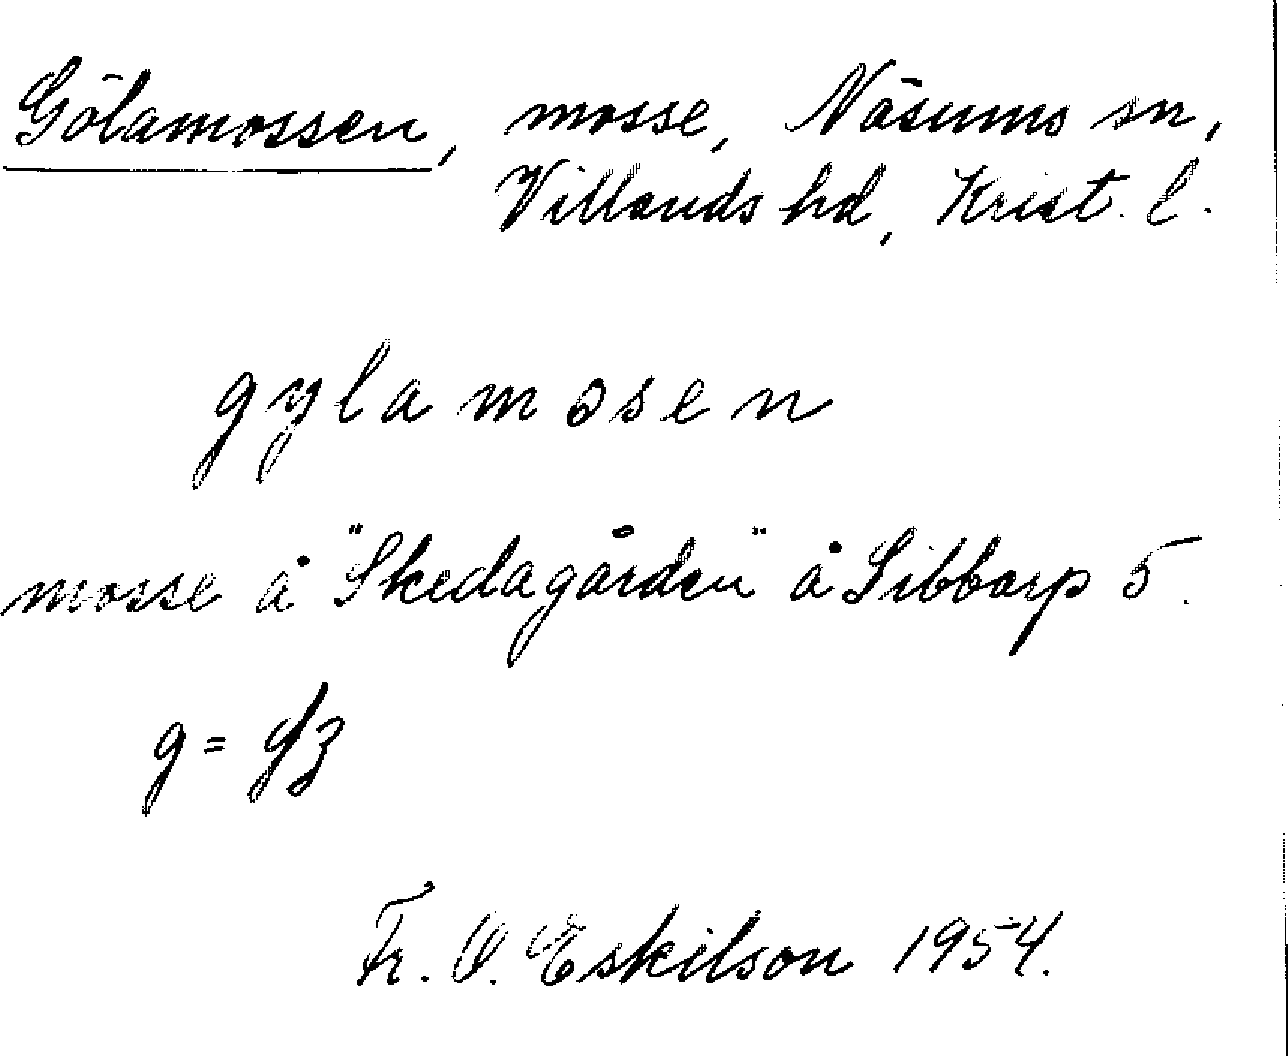 Gölamossen, mosse, Näsums sn,
Villands hd, Krist. l.
gylamosen
mosse å "Skedagården" å Sibbarp 5.
g = y3
Fr. O. Eskilson 1954.